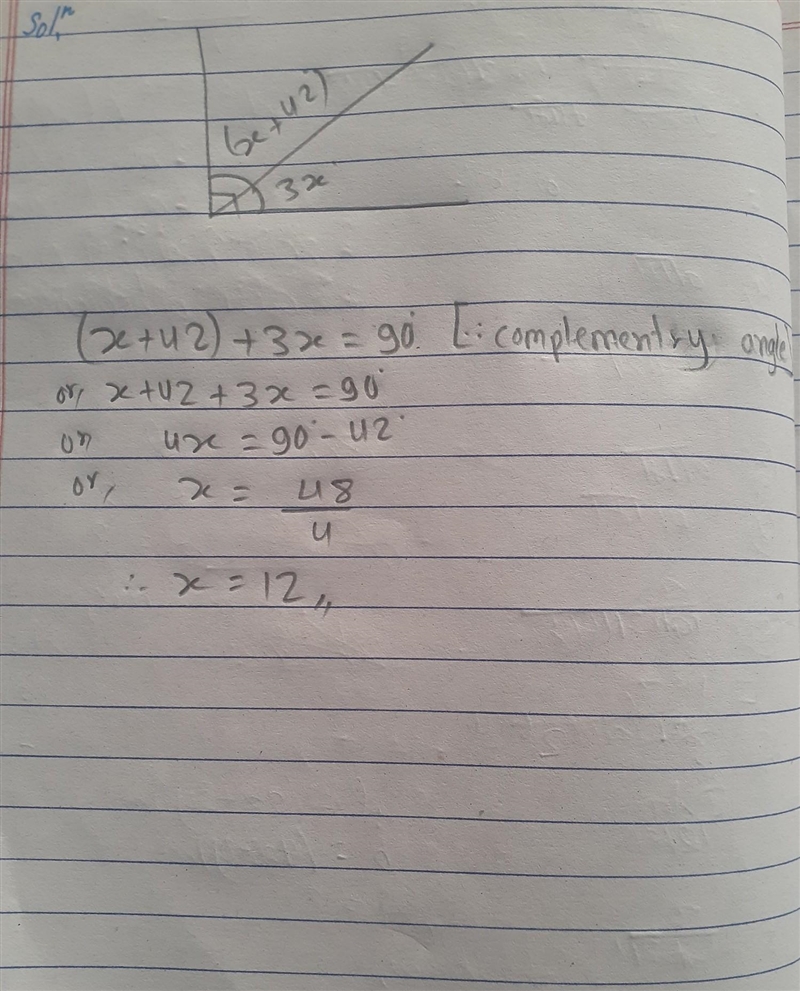 Solⁿ
(x+42)°
3x°
(x+42)+3x=90°. [∵ complementry angle]
or, x+42+3x=90°
or 4x=90°-42°
or, x= 48/4
∴ x=12,,